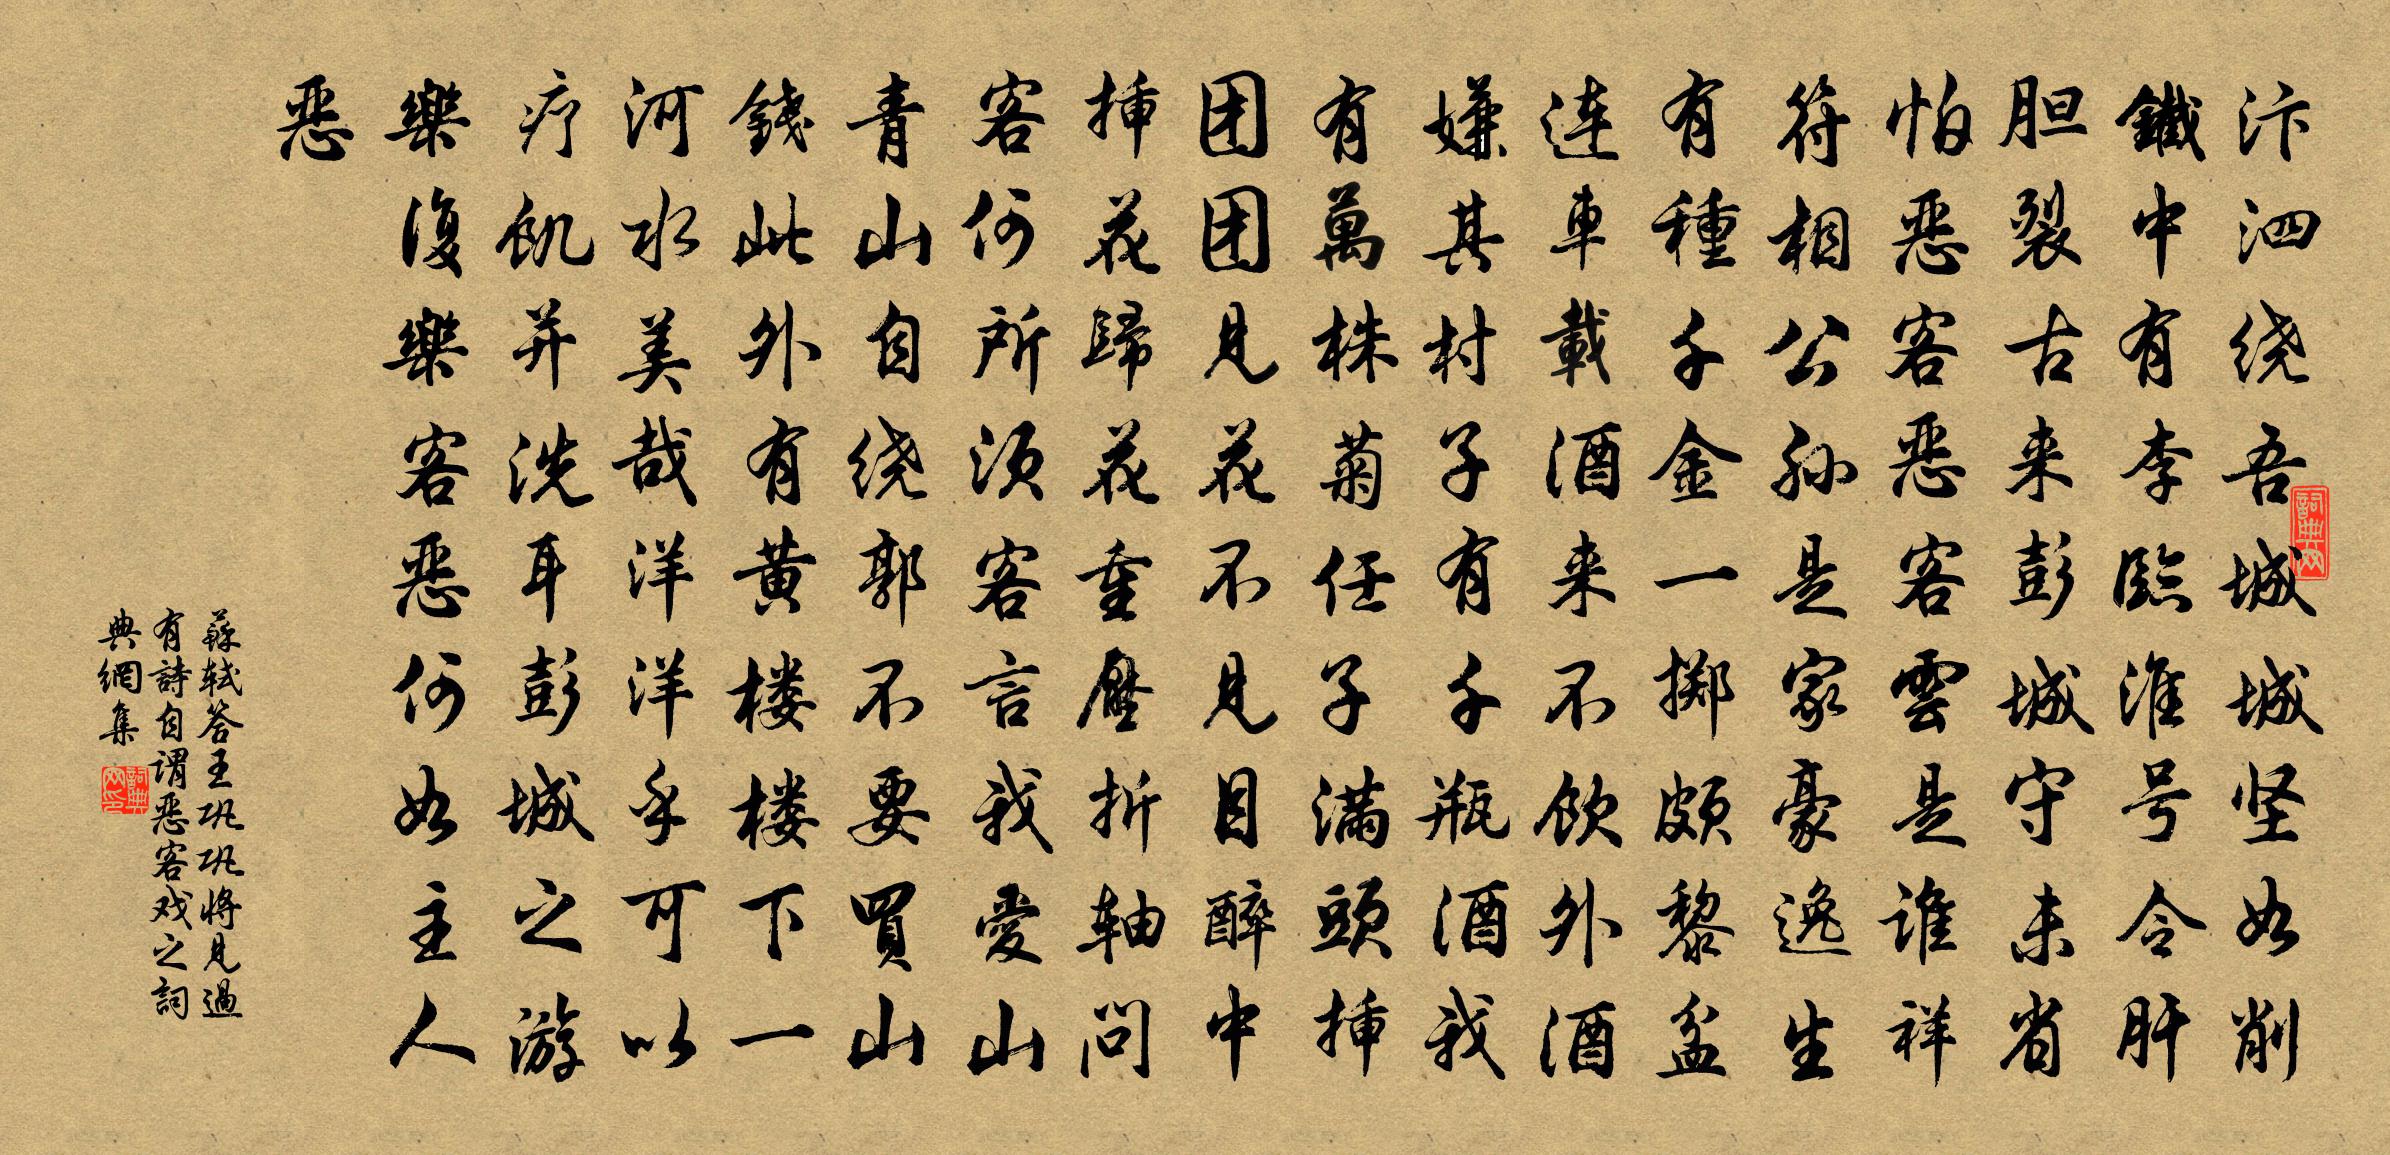 汴泗绕吾城城坚如削
鐵中有李臨淮号令肝
胆裂古来彭城守未省
怕恶客恶客雲是谁祥
符相公孙是家豪逸生
有種千金一掷颇黎盆
连車載酒来不饮外酒
嫌其村子有千瓶酒我
有萬株菊任子满頭插
团团見花不見目醉中
插花歸花重壓折轴问
客何所须客言我爱山
青山自绕郭不要買山
錢此外有黄楼楼下一
河水美哉洋洋乎可以
疗饥并洗耳彭城之游
樂復樂客恶何如主人
恶
蘇轼答王巩巩将見過
有詩自谓恶客戏之詞
典網集
詞典网
詞典网印